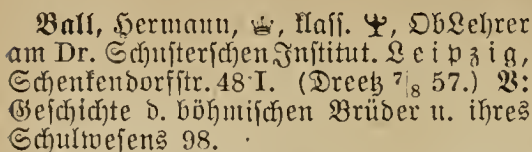 Ball, Hermann, ♕, klass. ⚲, ObLehrer
am Dr. Schusterschen Institut. Leipzig,
Schenkendorfstr. 48 I. (Dreetz 7/8 57.) V:
Geschichte d. böhmischen Brüder u. ihres
Schulwesens 98.